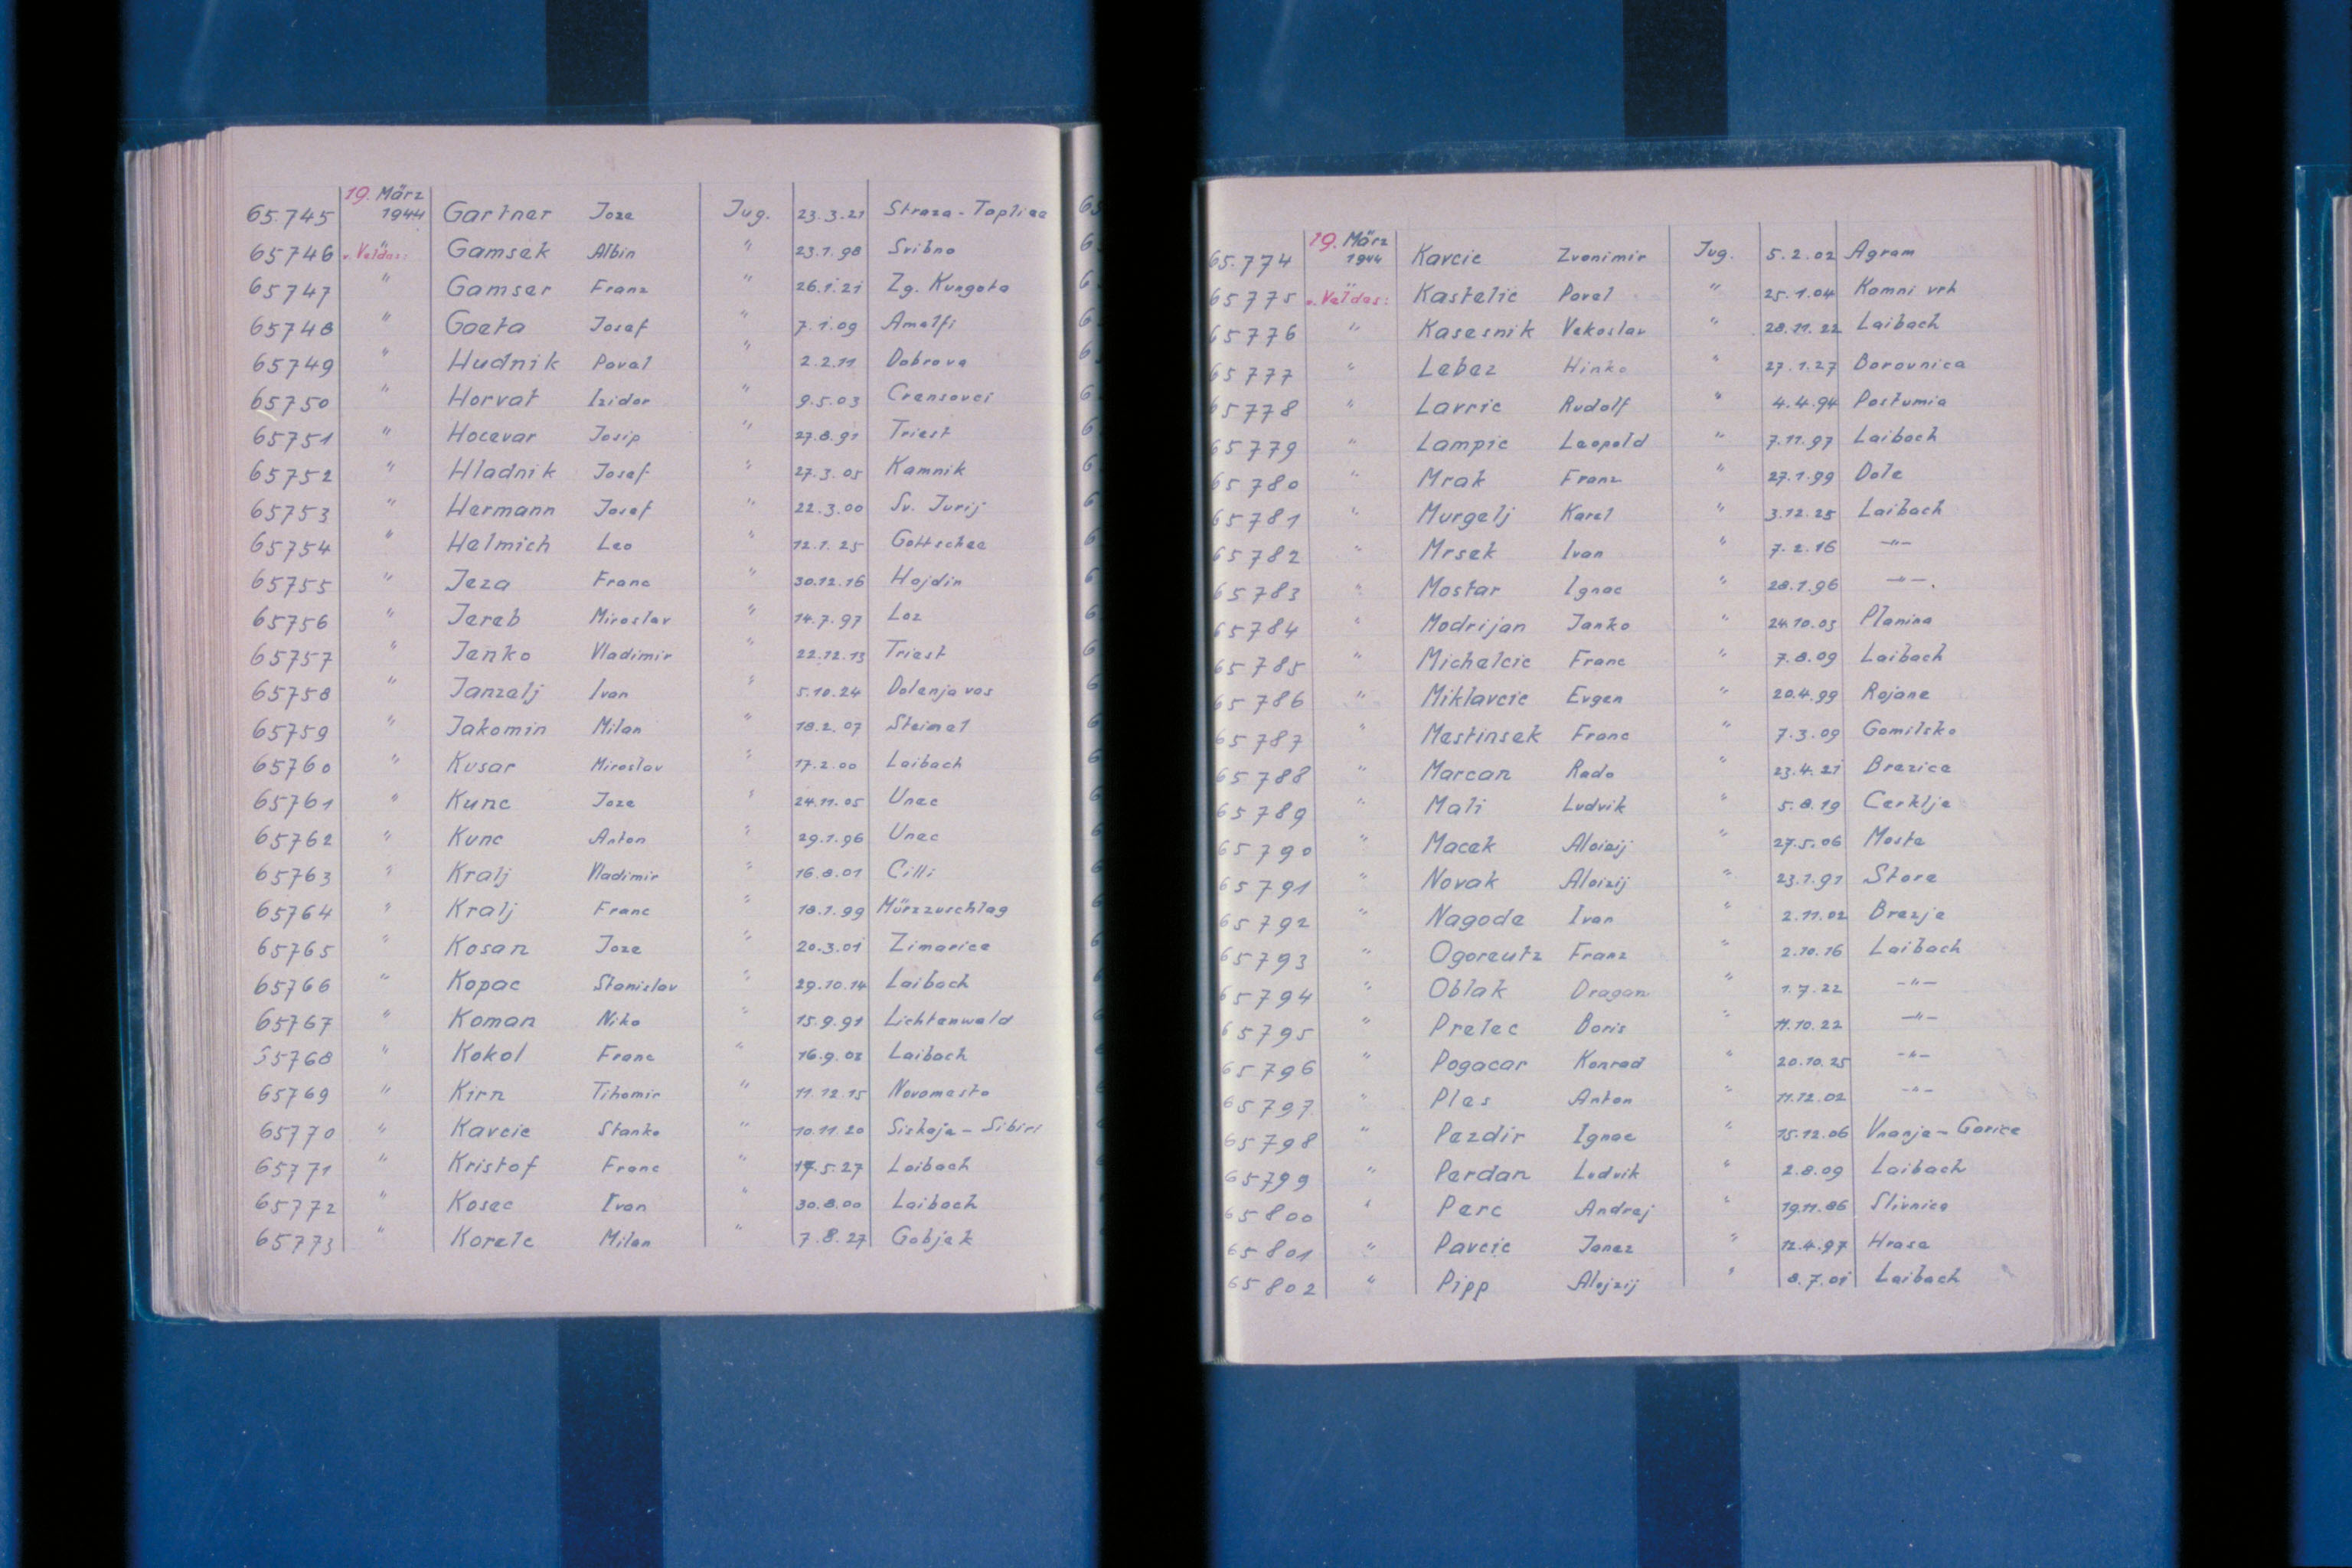 65.745 19. März 1944 Gartner Joze Jug. 23.3.21 Straza-Toplice
65746 v. Veldes: " Gamsek Albin " 23.1.98 Svibno
65747 " Gamser Franz " 26.1.21 Zg. Kungota
65748 " Goeta Josef " 7.1.09 Amalfi
65749 " Hudnik Paval " 2.2.11 Dobrova
65750 " Horvat Izidor " 9.5.03 Crensovci
65751 " Hocevar Josip " 27.8.91 Triest
65752 " Hladnik Josef " 27.3.05 Kamnik
65753 " Hermann Josef " 22.3.00 Sv. Jurij
65754 " Helmich Leo " 12.1.25 Gottschee
65755 " Jeza Franc " 30.12.16 Hajdin
65756 " Jereb Miroslav " 14.7.97 Loz
65757 " Jenko Vladimir " 22.12.13 Triest
65758 " Janzelj Ivan " 5.10.24 Dolenja vas
65759 " Jakomin Milan " 18.2.07 Steimel
65760 " Kusar Miroslav " 17.2.00 Laibach
65761 " Kunc Joze " 24.11.05 Unec
65762 " Kunc Anton " 29.1.96 Unec
65763 " Kralj Vladimir " 16.8.01 Cilli
65764 " Kralj Franc " 18.1.99 Mürzzuschlag
65765 " Kosan Joze " 20.3.01 Zimarice
65766 " Kopac Stanislav " 29.10.14 Laibach
65767 " Koman Niko " 15.9.91 Lichtenwald
65768 " Kokol Franc " 16.9.02 Laibach
65769 " Kirn Tihomir " 11.12.15 Novomesto
65770 " Kavcic Stanko " 10.11.20 Siskaja-Sibiri
65771 " Kristof Franc " 17.5.27 Laibach
65772 " Kosec Ivan " 30.8.00 Laibach
65773 " Korelc Milan " 7.8.27 Gobjek
65.774 19. März 1944 Kavcic Zvonimir Jug. 5.2.02 Agram
65775 v. Veldes: " Kastelic Paval " 25.1.04 Kamni vrh
65776 " Kasesnik Vekoslav " 28.11.22 Laibach
65777 " Lebez Hinko " 27.1.27 Borovnica
65778 " Lavric Rudolf " 4.4.94 Postumia
65779 " Lampic Leopold " 7.11.97 Laibach
65780 " Mrak Franz " 27.1.99 Dole
65781 " Murgelj Karel " 3.12.25 Laibach
65782 " Mrsek Ivan " 7.2.16 -"-
65783 " Mostar Ignac " 28.1.96 -"-.
65784 " Modrijan Janko " 24.10.05 Planina
65785 " Michelcic Franc " 7.8.09 Laibach
65786 " Miklavcic Evgen " 20.4.99 Rojane
65787 " Mestinsek Franc " 7.3.09 Gomilsko
65788 " Marcan Rado " 23.4.21 Brezice
65789 " Mali Ludvik " 5.8.19 Cerklje
65790 " Macek Aloizij " 27.5.06 Moste
65791 " Novak Aloizij " 23.1.91 Store
65792 " Nagode Ivan " 2.11.02 Brezje
65793 " Ogoreutz Franz " 2.10.16 Laibach
65794 " Oblak Dragan " 1.7.22 -"-
65795 " Prelec Boris " 11.10.22 -"-
65796 " Pogacar Konrad " 20.10.25 -"-
65797 " Ples Anton " 11.12.02 -"-
65798 " Pezdir Ignac " 15.12.06 Vnanje-Gorice
65799 " Perdan Ludvik " 2.8.09 Laibach
65800 " Perc Andrej " 19.11.86 Slivnica
65801 " Pavcic Janez " 12.4.97 Hrase
65802 " Pipp Alojzij " 8.7.01 Laibach